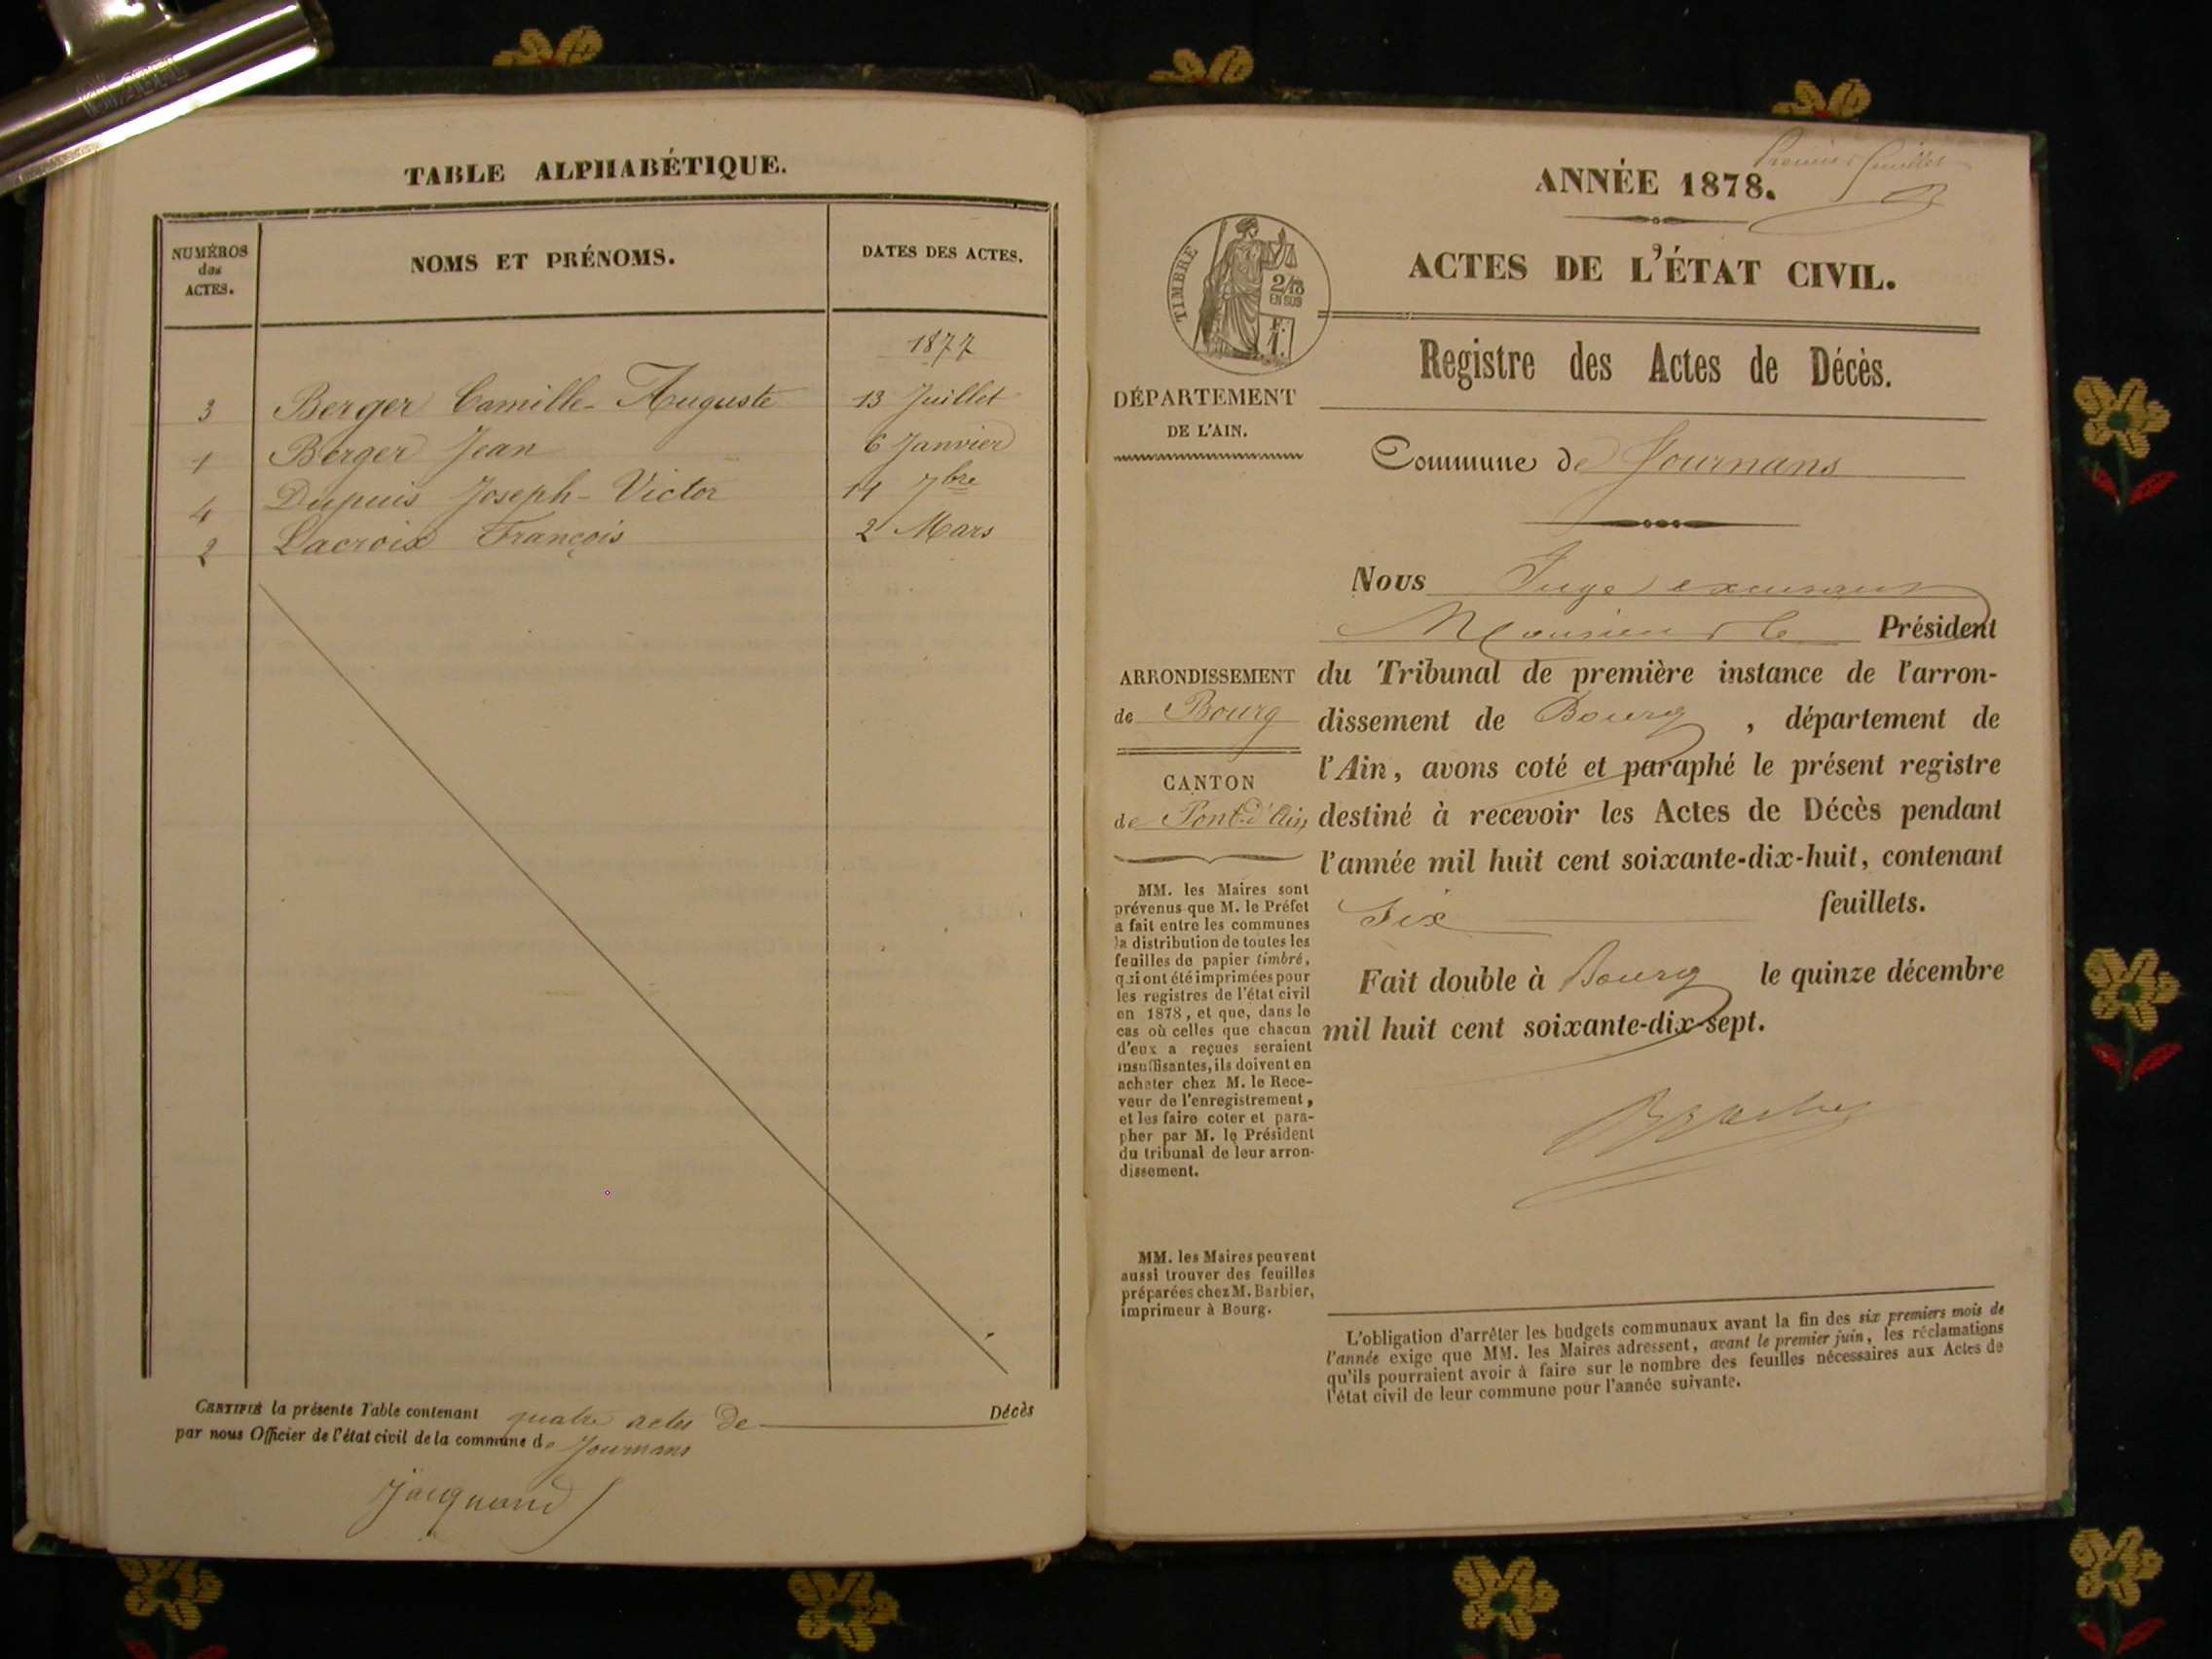 TABLE ALPHABÉTIQUE.
NUMÉROS
des
ACTES.
NOMS ET PRÉNOMS.
DATES DES ACTES.
1877
3 Berger Camille-Auguste 13 Juillet
1 Berger Jean 6 Janvier
4 Dupuis Joseph-Victor 14 7bre
2 Lacroix François 2 Mars
CERTIFIÉ la présente Table contenant quatre actes de Décès
par nous Officier de l'état civil de la commune de Journans
Jacquand
Premier feuillet
ANNÉE 1878.
TIMBRE
2/10
EN SUS
F.
1.
ACTES DE L'ÉTAT CIVIL.
Registre des Actes de Décès.
DÉPARTEMENT
DE L'AIN.
Commune de Journans
ARRONDISSEMENT
de Bourg
CANTON
de Pont-d'Ain
MM. les Maires sont
prévenus que M. le Préfet
a fait entre les communes
la distribution de toutes les
feuilles de papier timbré,
qui ont été imprimées pour
les registres de l'état civil
en 1878, et que, dans le
cas où celles que chacun
d'eux a reçues seraient
insuffisantes, ils doivent en
acheter chez M. le Rece-
veur de l'enregistrement,
et les faire coter et para-
pher par M. le Président
du tribunal de leur arron-
dissement.
MM. les Maires peuvent
aussi trouver des feuilles
préparées chez M. Barbier,
imprimeur à Bourg.
Nous Juge excusant
Monsieur le Président
du Tribunal de première instance de l'arron-
dissement de Bourg, département de
l'Ain, avons coté et paraphé le présent registre
destiné à recevoir les Actes de Décès pendant
l'année mil huit cent soixante-dix-huit, contenant
Six feuillets.
Fait double à Bourg le quinze décembre
mil huit cent soixante-dix-sept.
L'obligation d'arrêter les budgets communaux avant la fin des six premiers mois de
l'année exige que MM. les Maires adressent, avant le premier juin, les réclamations
qu'ils pourraient avoir à faire sur le nombre des feuilles nécessaires aux Actes de
l'état civil de leur commune pour l'année suivante.